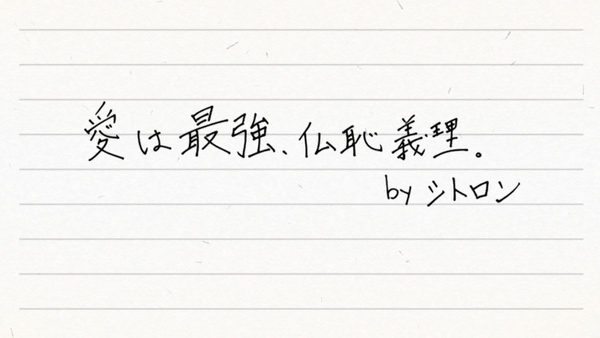 愛は最強、仏恥義理。
by シトロン